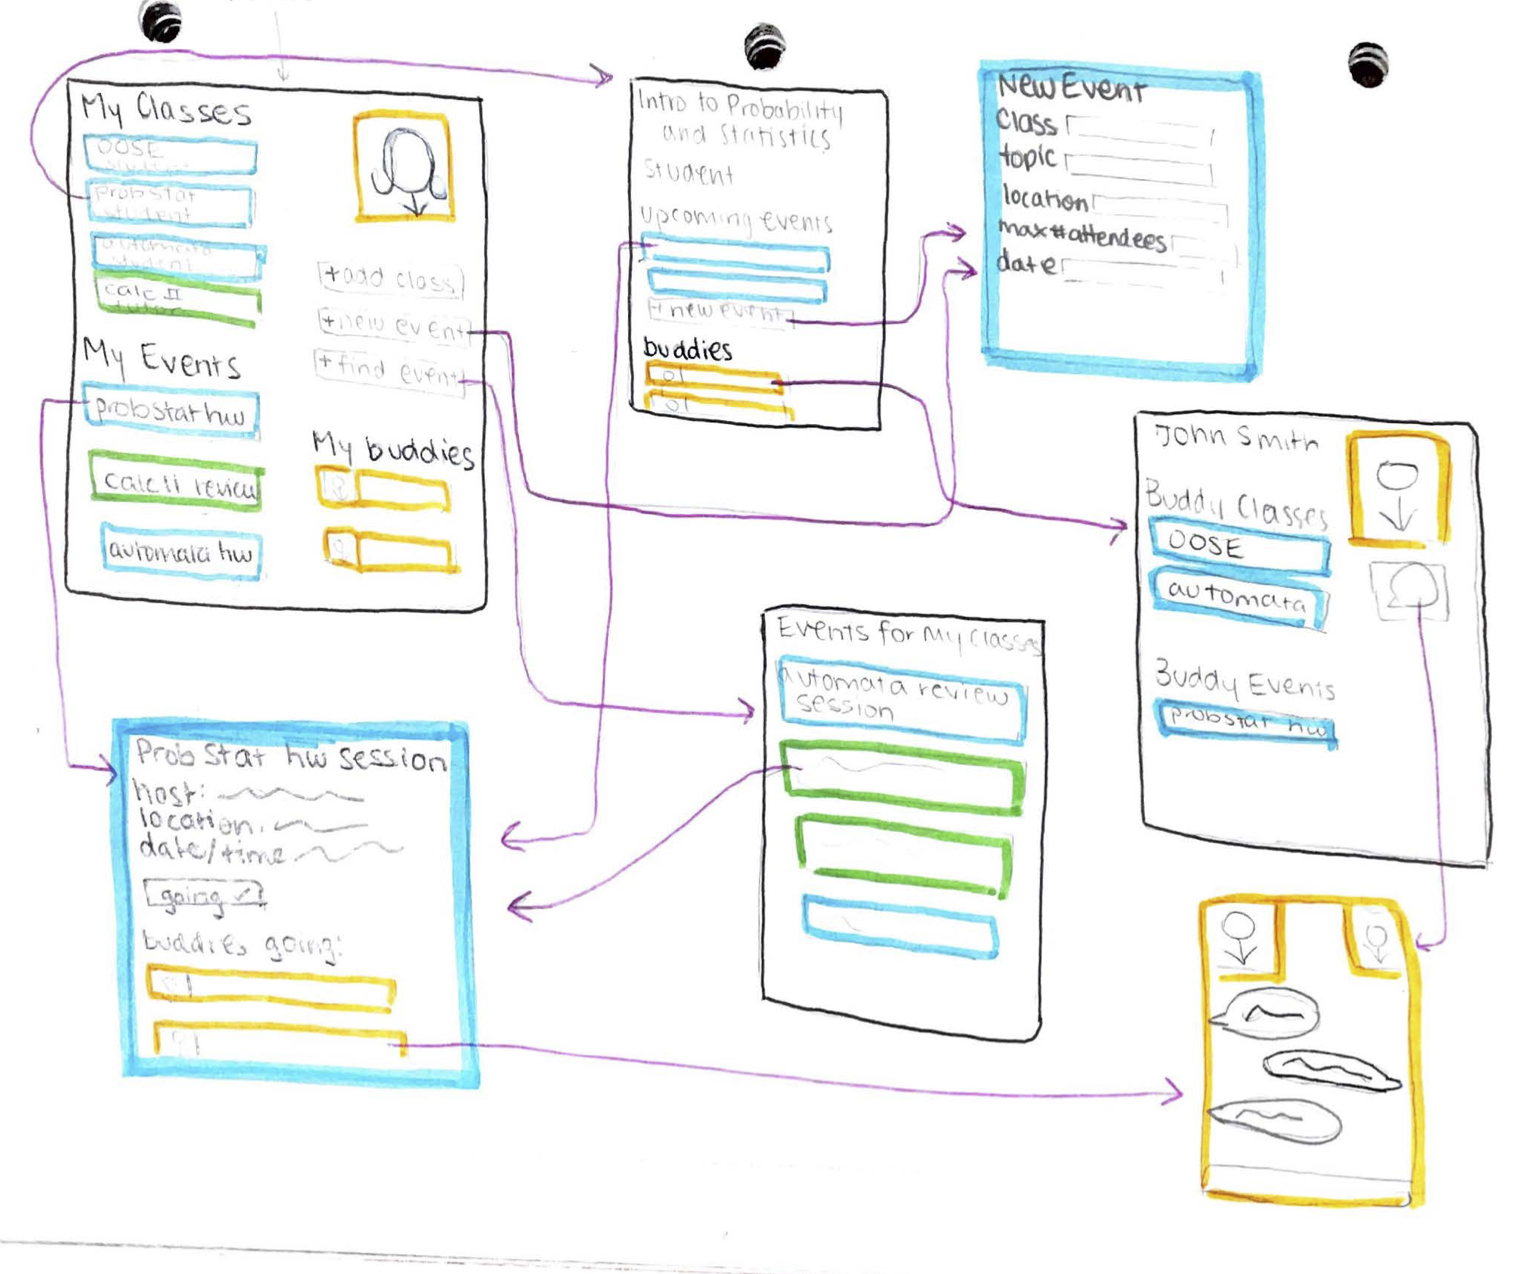 My Classes
OOSE
student
prob stat
student
automata
student
calc II
tutor
+add class
+new event
+find event
My Events
probstat hw
calc II review
automata hw
My buddies
Intro to Probability
and Statistics
student
upcoming events
+new event
buddies
New Event
class
topic
location
max # attendees
date
John Smith
Buddy Classes
OOSE
automata
Buddy Events
probstat hw
Events for My Classes
automata review
session
Prob Stat hw session
host:
location:
date/time
going ✓
buddies going: